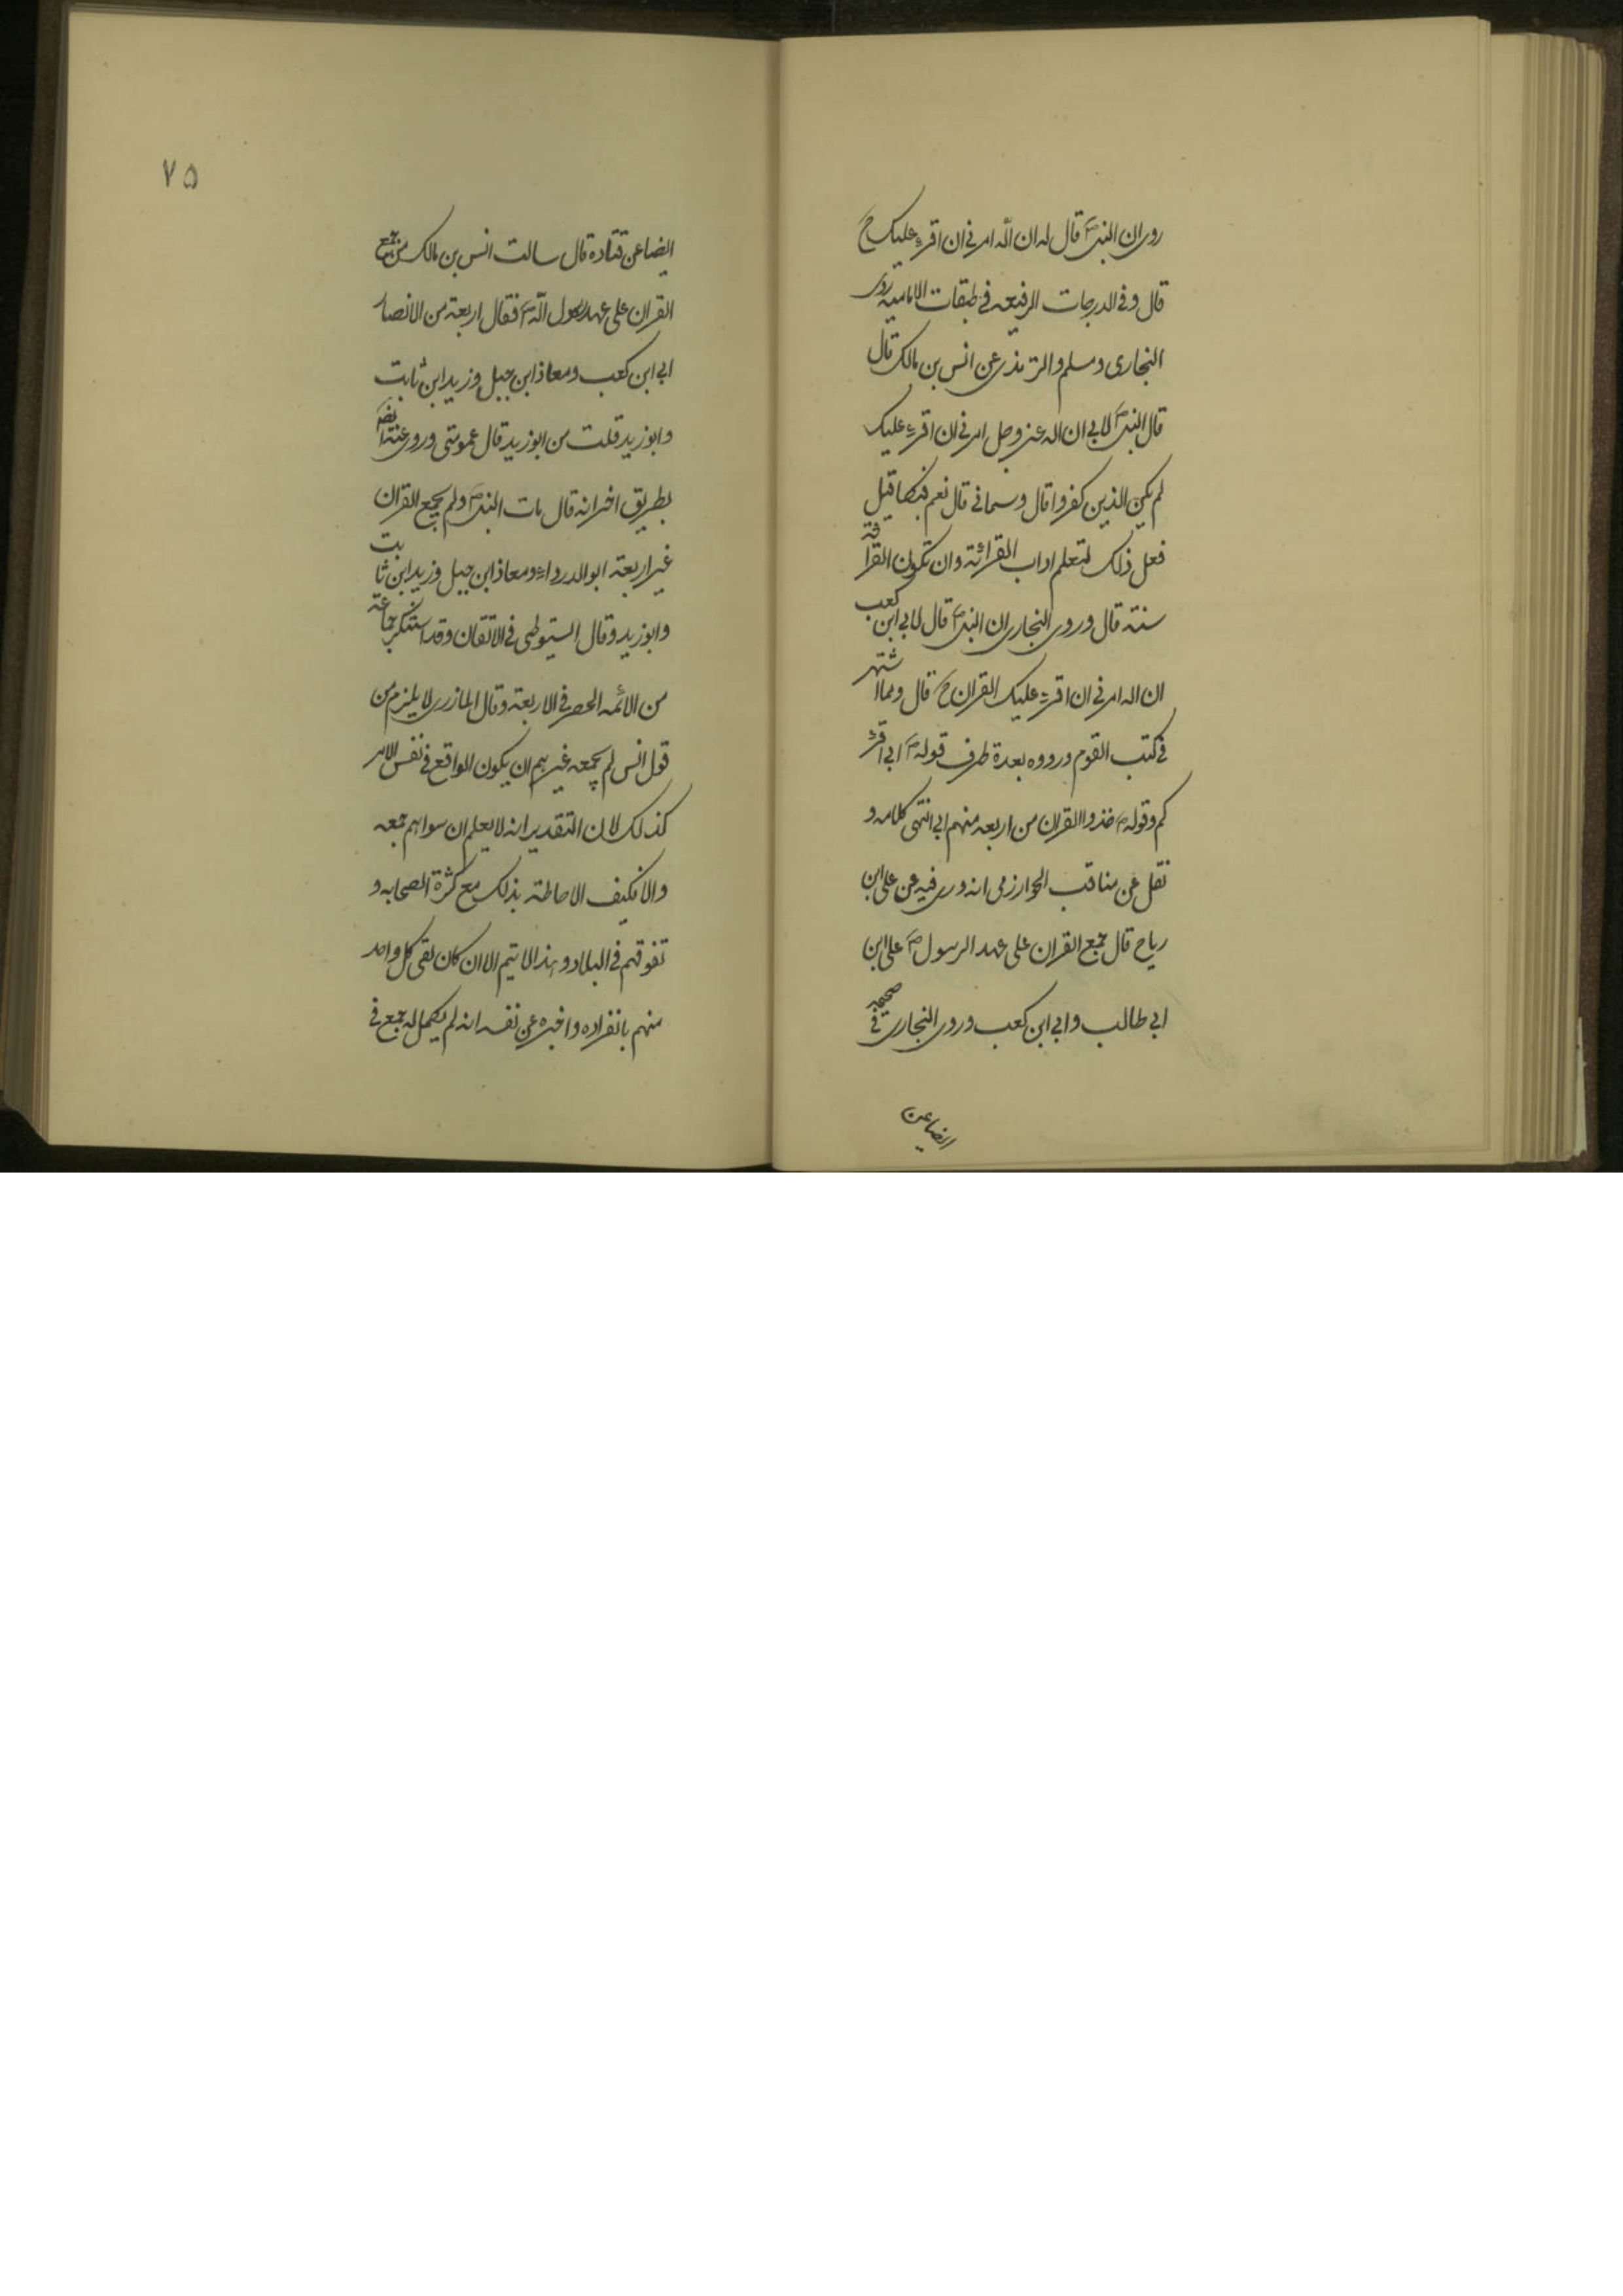 روى ان النبى ص قال له ان الله امرنى ان اقرء عليك ح
قال وفى الدرجات الرفيعه فى طبقات الاماميه روى
البخارى ومسلم والترمذى عن انس بن مالك قال
قال النبى ص لابى ان الله عز وجل امرنى ان اقرء عليك
لم يكن الذين كفروا قال وسمانى قال نعم فبكى قيل
فعل ذلك لتعلم اداب القرائة وان تكون القرائة
سنة قال وروى البخارى ان النبى ص قال لابى ابن كعب
ان الله امرنى ان اقرء عليك القران ح قال ومما اشتهر
فى كتب القوم ورووه بعدة طرف قوله ص ابى اقرئ
كم وقوله ص خذوا القران من اربعه منهم ابى انتهى كلامه و
نقل عن مناقب الخوارزمى انه روى فيه عن على ابن
رياح قال جمع القران على عهد الرسول ص على ابن
ابى طالب وابى ابن كعب وروى البخارى فى صحيحه
ايضا عن
٧٥
ايضا عن قتادة قال سالت انس بن مالك من جمع
القران على عهد رسول الله ص فقال اربعة من الانصار
ابى ابن كعب ومعاذ ابن جبل وزيد ابن ثابت
وابو زيد قلت من ابو زيد قال عمومتى وروى عنه ايضا
بطريق اخر انه قال مات النبى ص ولم يجمع القران
غير اربعة ابو الدرداء ومعاذ ابن جبل وزيد ابن ثابت
وابو زيد وقال السيوطى فى الاتقان وقد استنكر جماعة
من الائمه الحصر فى الاربعة وقال المازرى لا يلزم من
قول انس لم يجمعه غيرهم ان يكون الواقع فى نفس الامر
كذلك لان التقدير انه لا يعلم ان سواهم جمعه
والا فكيف الاحاطة بذلك مع كثرة الصحابه و
تفرقهم فى البلاد وهذا لا يتم الا ان كان لقى كل واحد
منهم بانفراده واخبره عن نفسه انه لم يكمل له جمع فى